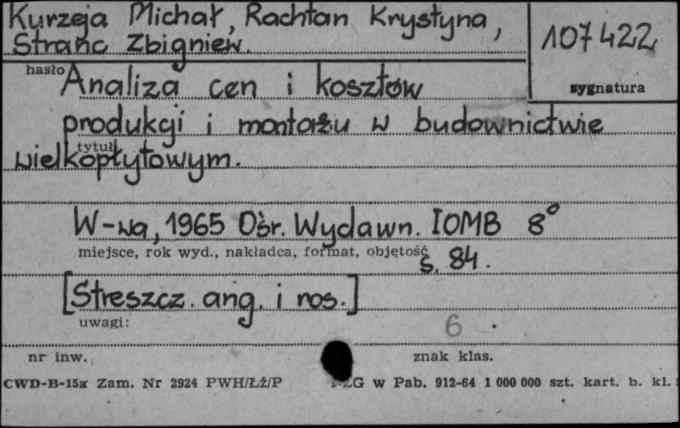 Kurzeja Michał, Rachtan Krystyna,
Stranc Zbigniew.
107422
hasło Analiza cen i kosztów
sygnatura
produkcji i montażu w budownictwie
tytuł
wielkopłytowym.
W-wa, 1965 Ośr. Wydawn. IOMB 8°
miejsce, rok wyd., nakładca, format, objętość
s. 84.
[Streszcz. ang. i ros.]
uwagi:
6
nr inw.
znak klas.
CWD-B-15a Zam. Nr 2924 PWH/ŁŻ/P
w Pab. 912-64 1 000 000 szt. kart. b. kl.